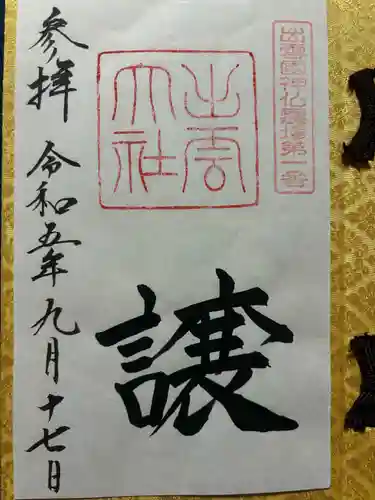 出雲國神仏霊場第一番
出雲大社
譲
参拝 令和五年九月十七日